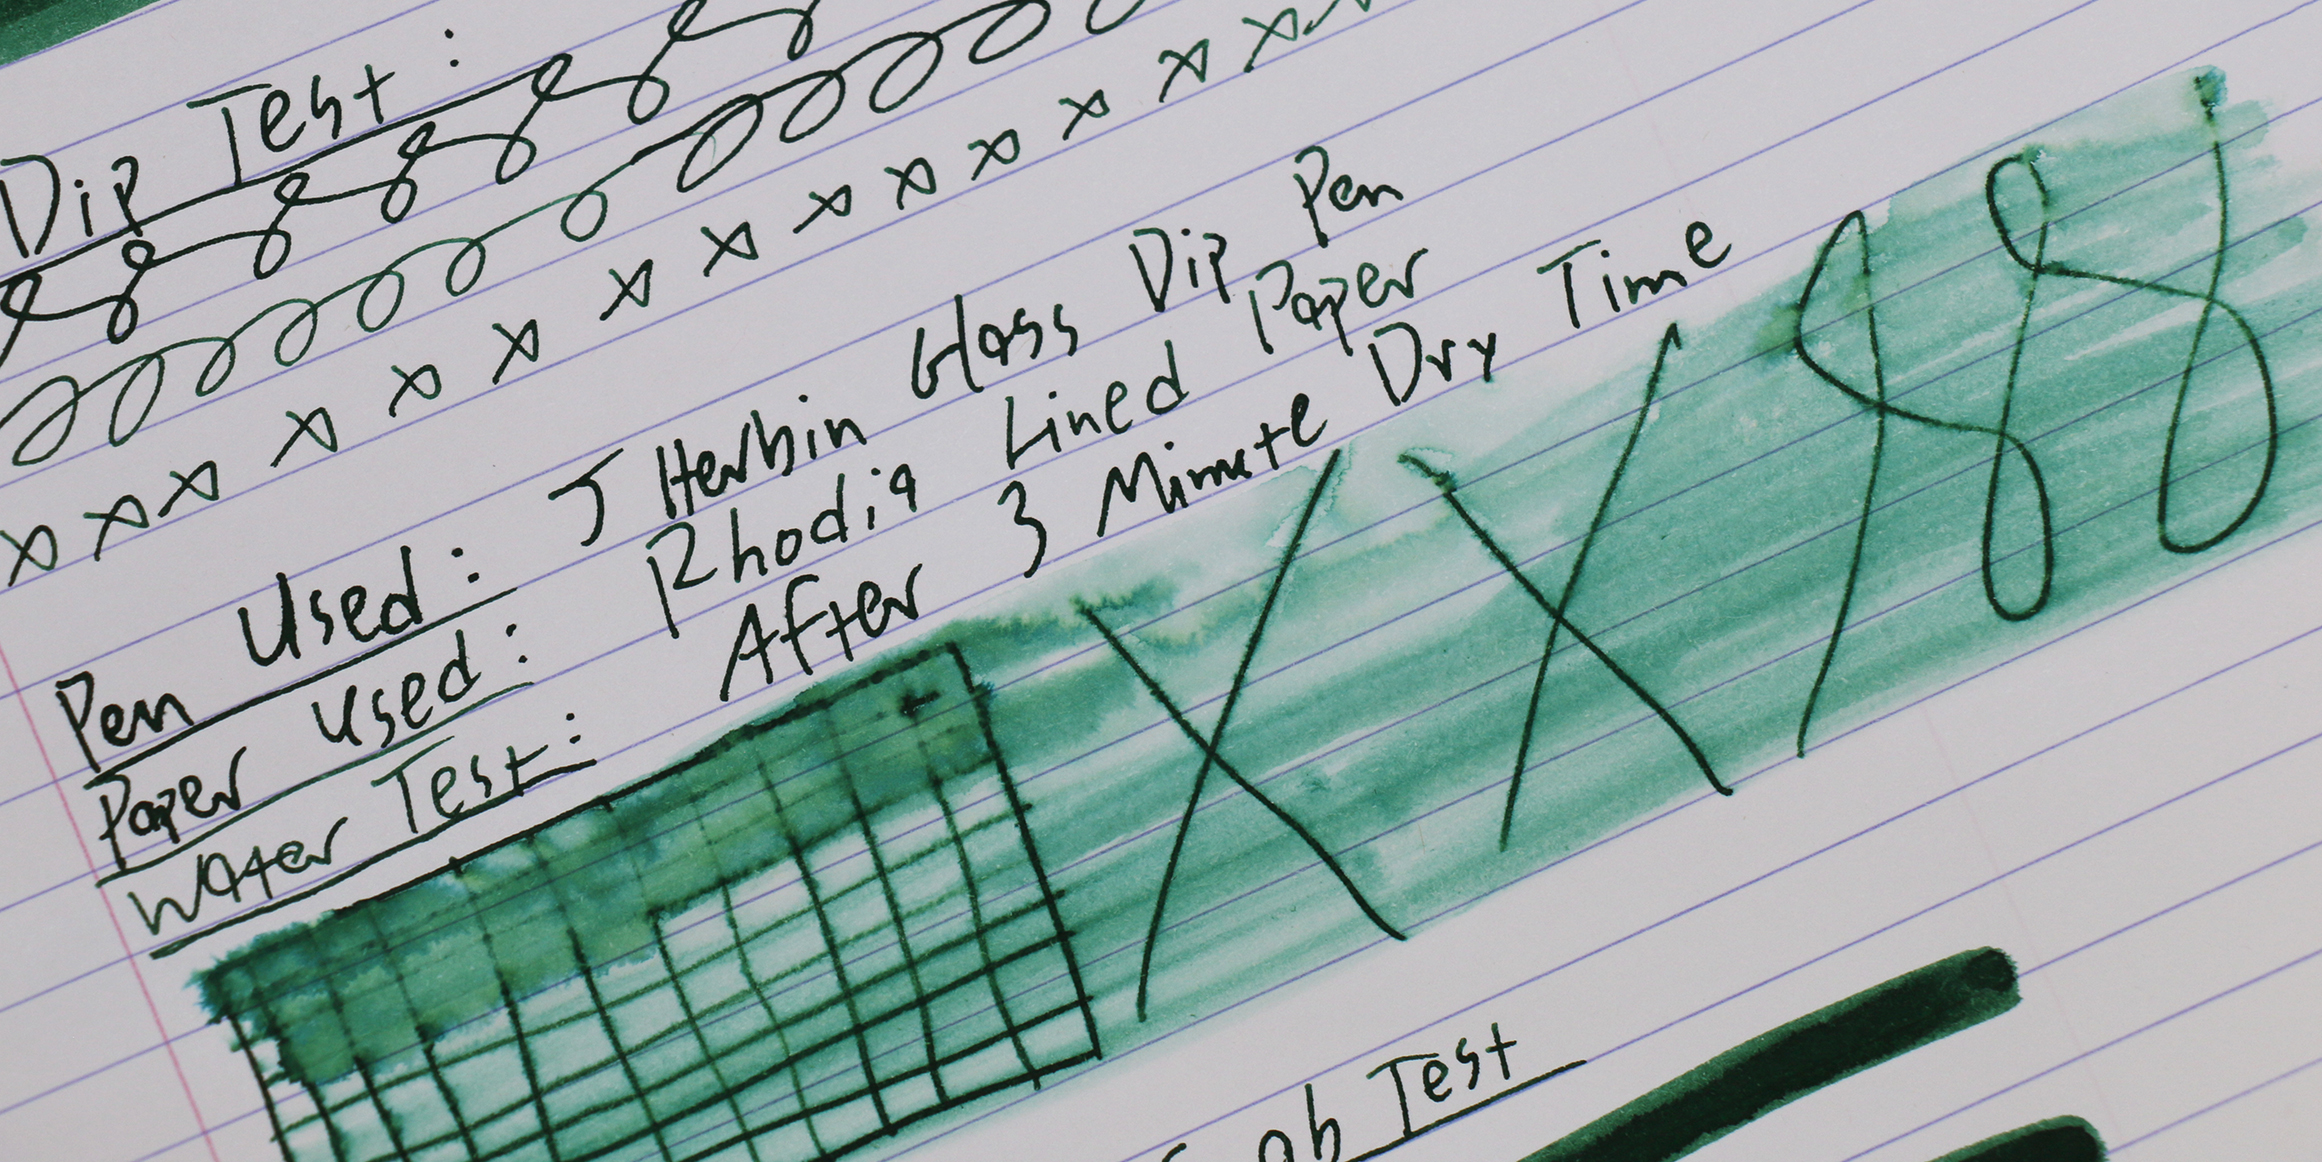 Dip Test:
x x x x x x x x x x x x x x x x
Pen Used: J Herbin Glass Dip Pen
Paper Used: Rhodia Lined Paper
Water Test: After 3 Minute Dry Time
X X
Test